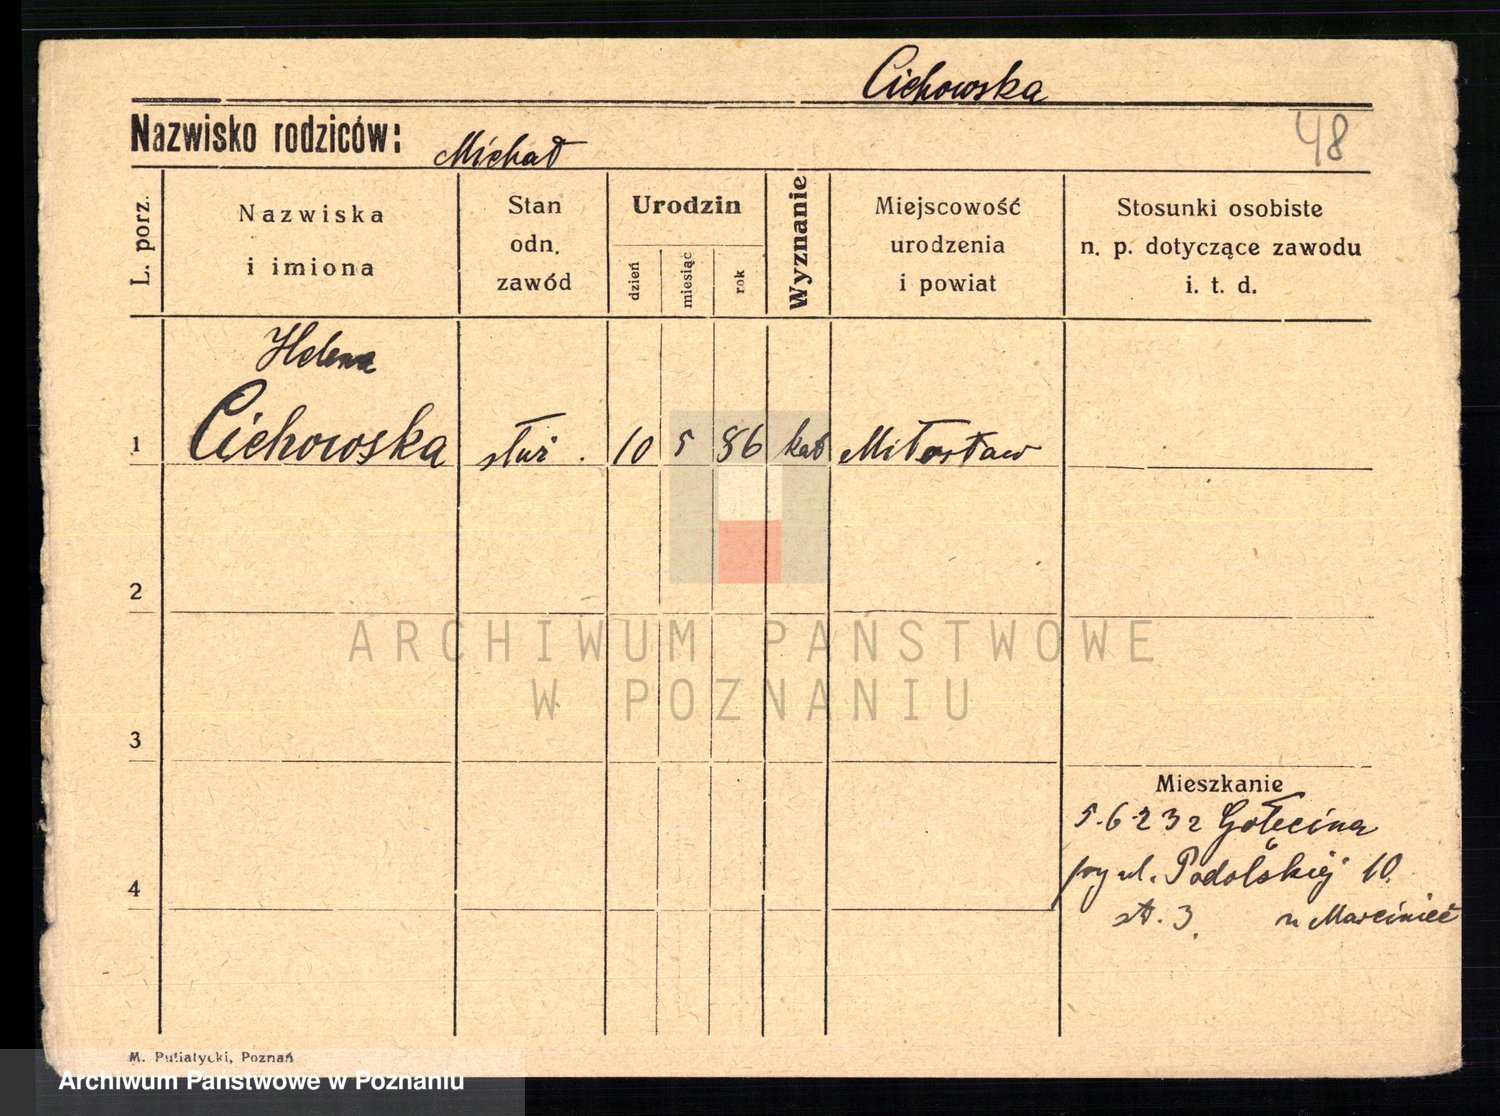 Cichowska
48
Nazwisko rodziców: Michał
L. porz.
Nazwiska
i imiona
Stan
odn.
zawód
Urodzin
dzień
miesiąc
rok
Wyznanie
Miejscowość
urodzenia
i powiat
Stosunki osobiste
n. p. dotyczące zawodu
i. t. d.
Helena
1 Cichowska służ. 10 5 86 kat Miłosław
2
ARCHIWUM PAŃSTWOWE
W POZNANIU
3
Mieszkanie
5.6.232 Gołecina
przy ul. Podolskiej 10.
4
st. 3. u Marciniec
M. Putiatycki, Poznań
Archiwum Państwowe w Poznaniu